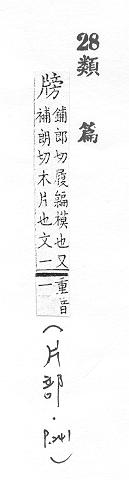 28類篇
牓
鋪郎切履編模也又重音
補朗切木片也文一一
(片部. p.241)